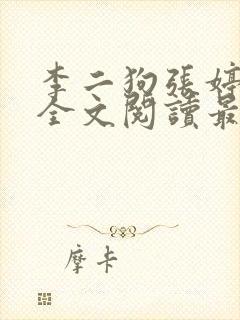 李二狗張婷
全文閱讀最
摩卡